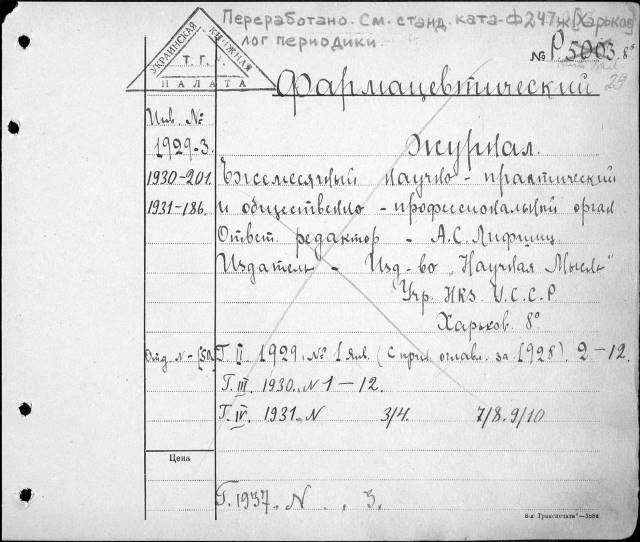 Переработано. См. станд. ката-
лог периодики.
Ф 247ж [Харьков]
УКРАИНСКАЯ КНИЖНАЯ
Т. Г.
ПАЛАТА
№ Р5003. 8°
29
Фармацевтический
Инв. №
1929-3. журнал.
1930-201. Ежемесячный научно - практический
1931-186. и общественно - профессиональный орган
Ответ. редактор - А.С. Лифшиц.
Издатель - Изд-во „Научная Мысль"
Укр. НКЗ U.С.С.Р
Харьков. 8°
Отд. N - [50] Г. II. 1929. № 1 янв. (с прил. оглавл. за 1928). 2-12.
Г. III. 1930. N 1-12.
Г. IV. 1931. N 3/4. 7/8. 9/10
Цена
Г. 1937. N. . 3.
8-я „Транспечати"—5584